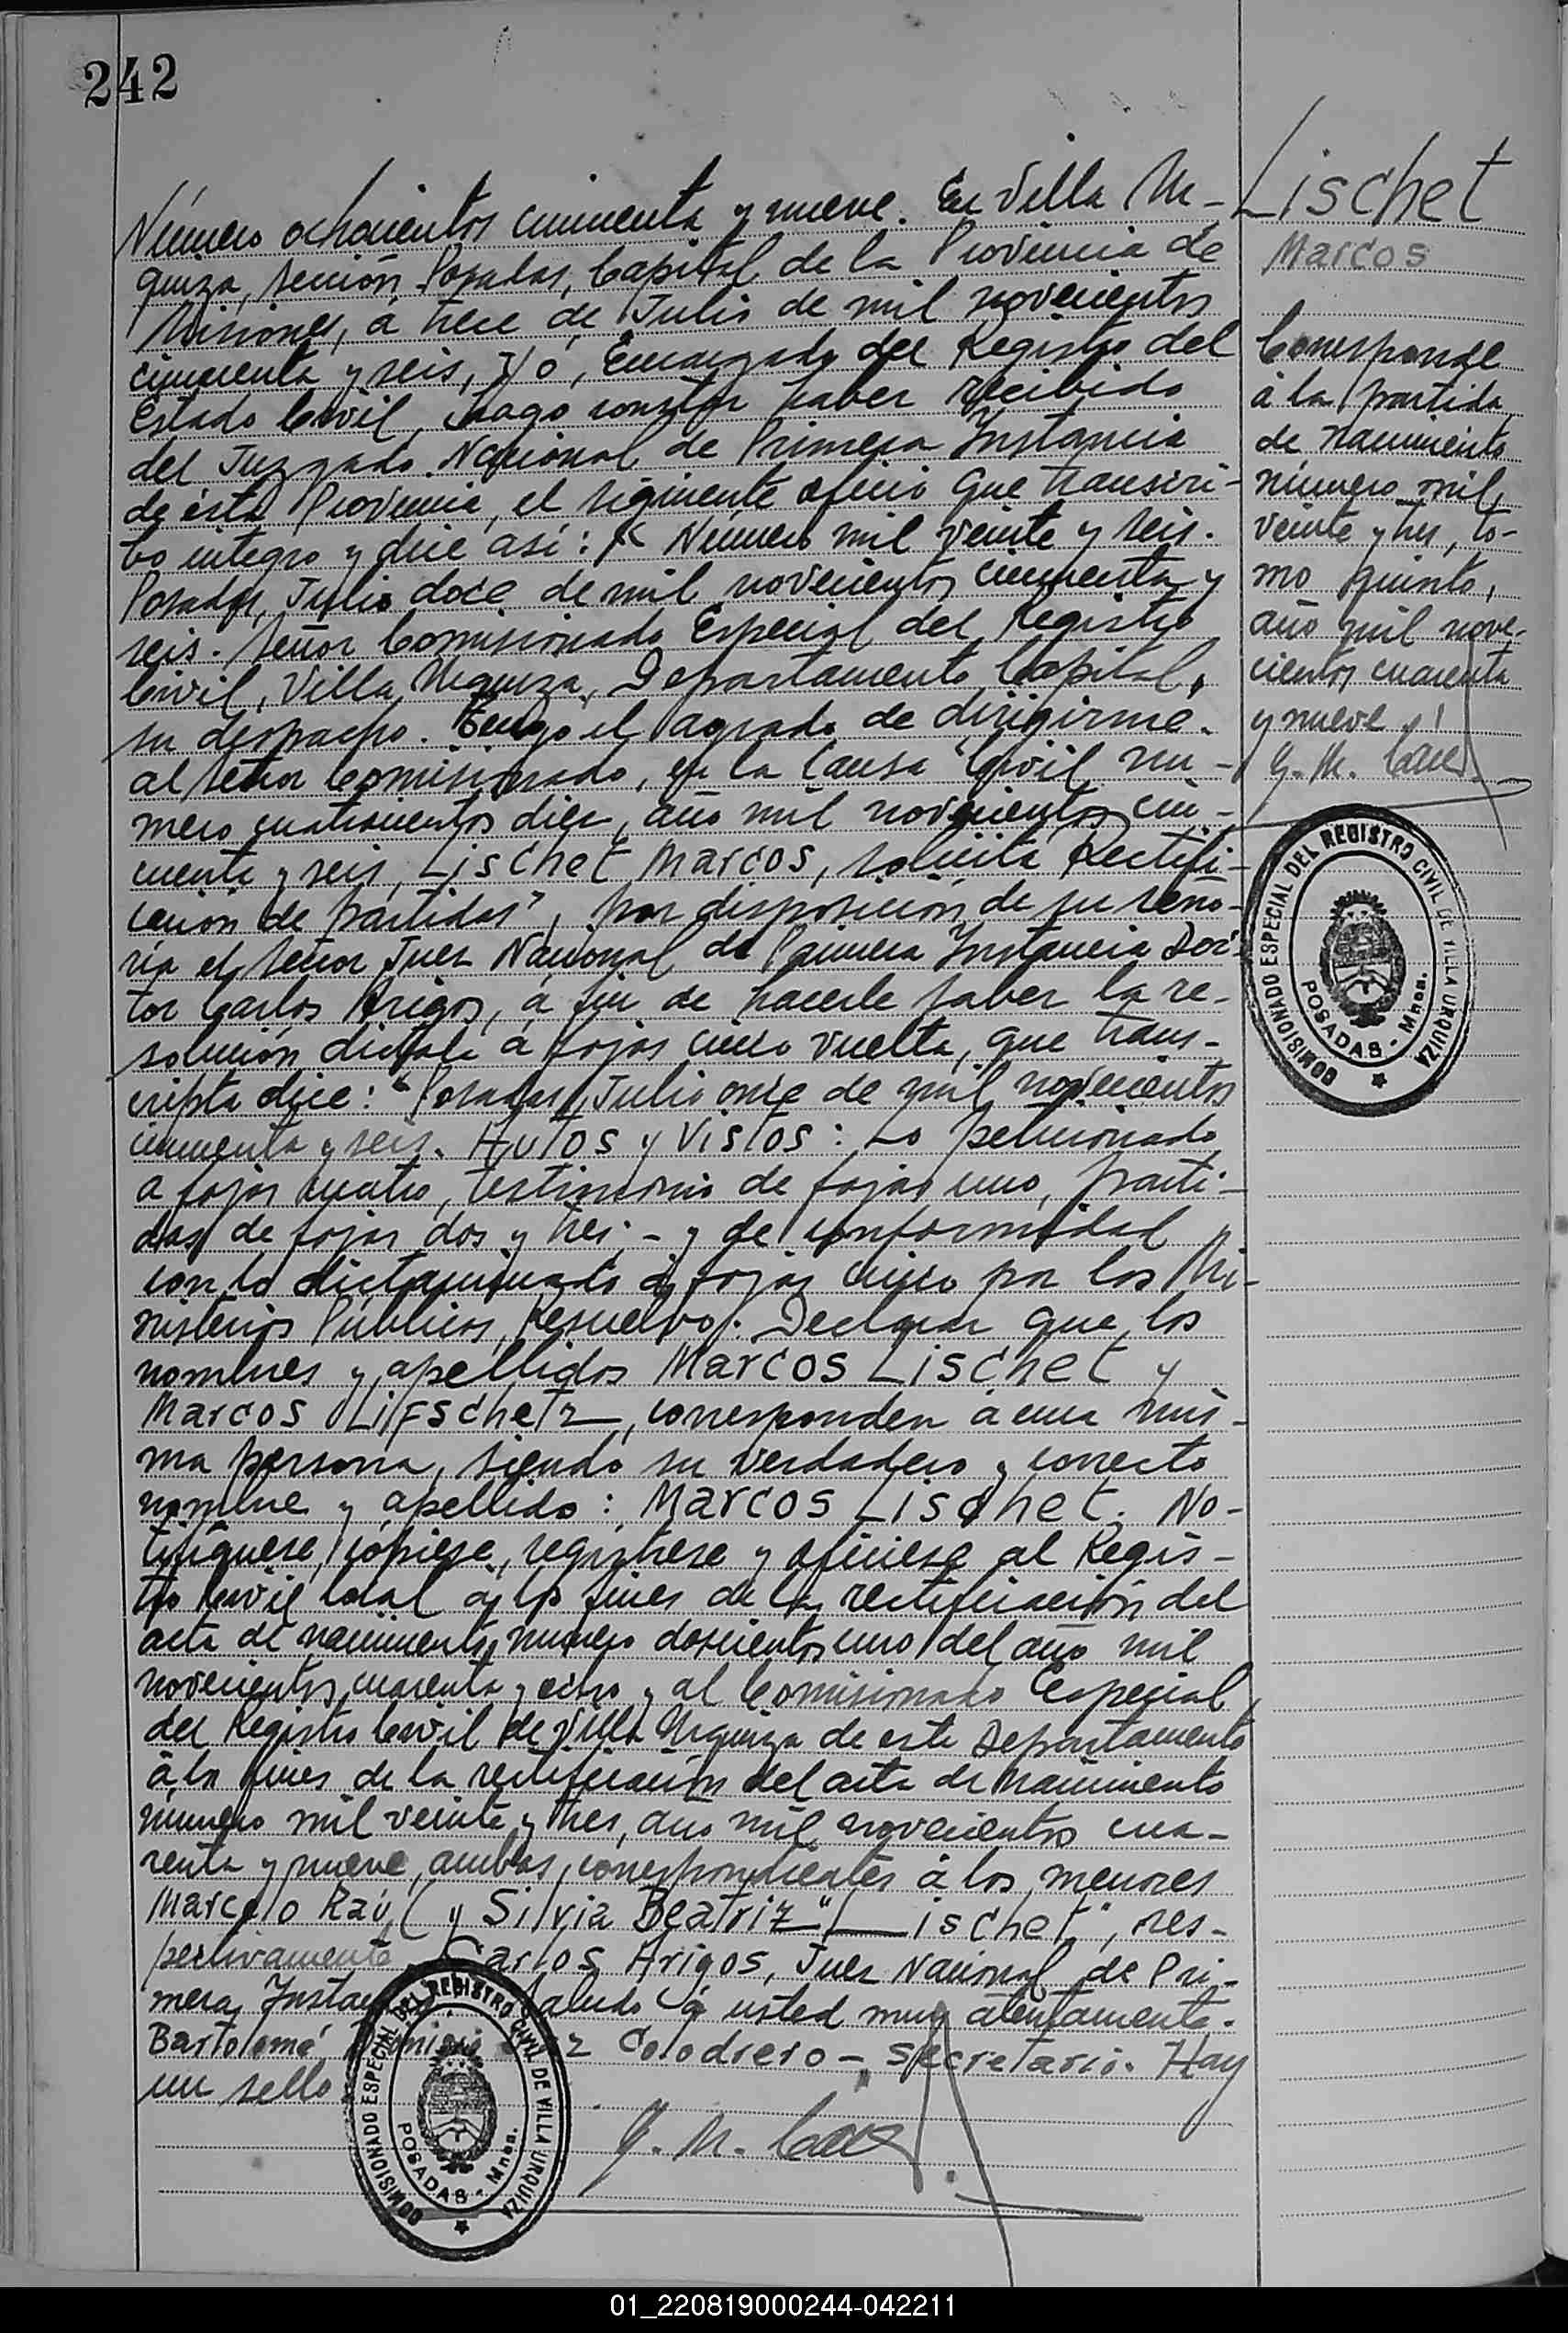 242
Número ochocientos cincuenta y nueve. En Villa Ur-
quiza, sección Posadas, Capital de la Provincia de
Misiones, a trece de Julio de mil novecientos
cincuenta y seis, Yo, Encargado del Registro del
Estado Civil, hago constar haber recibido
del Juzgado Nacional de Primera Instancia
de ésta Provincia, el siguiente oficio que transcri-
bo integro y dice así: « Número mil veinte y seis.
Posadas, Julio doce de mil novecientos cincuenta y
seis. Señor Comisionado Especial del Registro
Civil, Villa Urquiza, Departamento Capital,
su despacho. Tengo el agrado de dirigirme
al señor Comisionado, en la causa Civil nú-
mero cuatrocientos diez, año mil novecientos cin-
cuenta y seis, Lischet Marcos, solicita Rectifi-
cación de partidas", por disposición de su seño-
ría el señor Juez Nacional de Primera Instancia Doc-
tor Carlos Arigos, a fin de hacerle saber la re-
solución dictada a fojas cinco vuelta, que trans-
cripta dice: "Posadas, Julio once de mil novecientos
cincuenta y seis. Autos y Vistos: Lo peticionado
a fojas cuatro, testimonio de fojas uno, parti-
das de fojas dos y tres; - y de conformidad
con lo dictaminado a fojas cinco por los Mi-
nisterios Públicos, Resuelvo: Declarar que los
nombres y apellidos Marcos Lischet y
Marcos Lifschetz, corresponden a una mis-
ma persona, siendo su verdadero y correcto
nombre y apellido: Marcos Lischet. No-
tifíquese, cópiese, regístrese y ofíciese al Regis-
tro Civil local a los fines de la rectificación del
acta de nacimiento número doscientos uno del año mil
novecientos cuarenta y ocho y al Comisionado Especial
del Registro Civil de Villa Urquiza de este Departamento
a los fines de la rectificación del acta de nacimiento
número mil veinte y tres, año mil novecientos cua-
renta y nueve, ambas correspondientes a los menores
Marcelo Raúl y Silvia Beatriz "Lischet", res-
pectivamente. Carlos Arigos, Juez Nacional de Pri-
mera Instancia. Saludo a usted muy atentamente.
Bartolomé Colodrero - Secretario. Hay
un sello
G. M.
Lischet
Marcos
Corresponde
a la partida
de nacimiento
número mil
veinte y tres, to-
mo quinto,
año mil nove-
cientos cuarenta
y nueve
G. M.
COMISIONADO ESPECIAL DEL REGISTRO CIVIL DE VILLA URQUIZA
POSADAS - Mnes.
COMISIONADO ESPECIAL DEL REGISTRO CIVIL DE VILLA URQUIZA
POSADAS - Mnes.
01_220819000244-042211